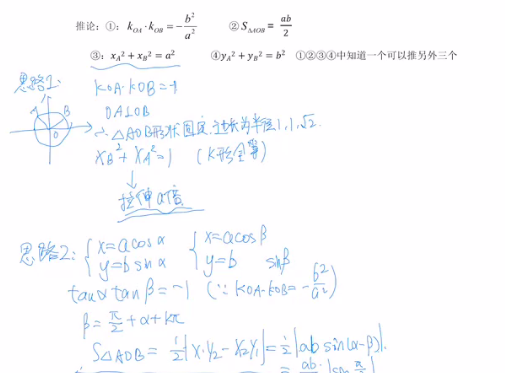 推论：①：k_{OA}·k_{OB}=-\frac{b^2}{a^2} ② S_{△AOB}=\frac{ab}{2}
③：x_A²+x_B²=a² ④y_A²+y_B²=b² ①②③④中知道一个可以推另外三个
思路1: KOA·KOB=-1
OA⊥OB
∴△AOB形状固定,边长为半径1,1,√2.
x_B²+x_A²=1 (K形全等)
A B O
拉伸a倍
思路2: {x=acosα y=b sinα {x=acosβ y=b sinβ
tanα tanβ=-1 (∵KOA·KOB=-\frac{b²}{a²})
β=\frac{π}{2}+α+kπ
S△AOB=\frac{1}{2}|x₁y₂-x₂y₁|=\frac{1}{2}|ab sin(α-β)|.